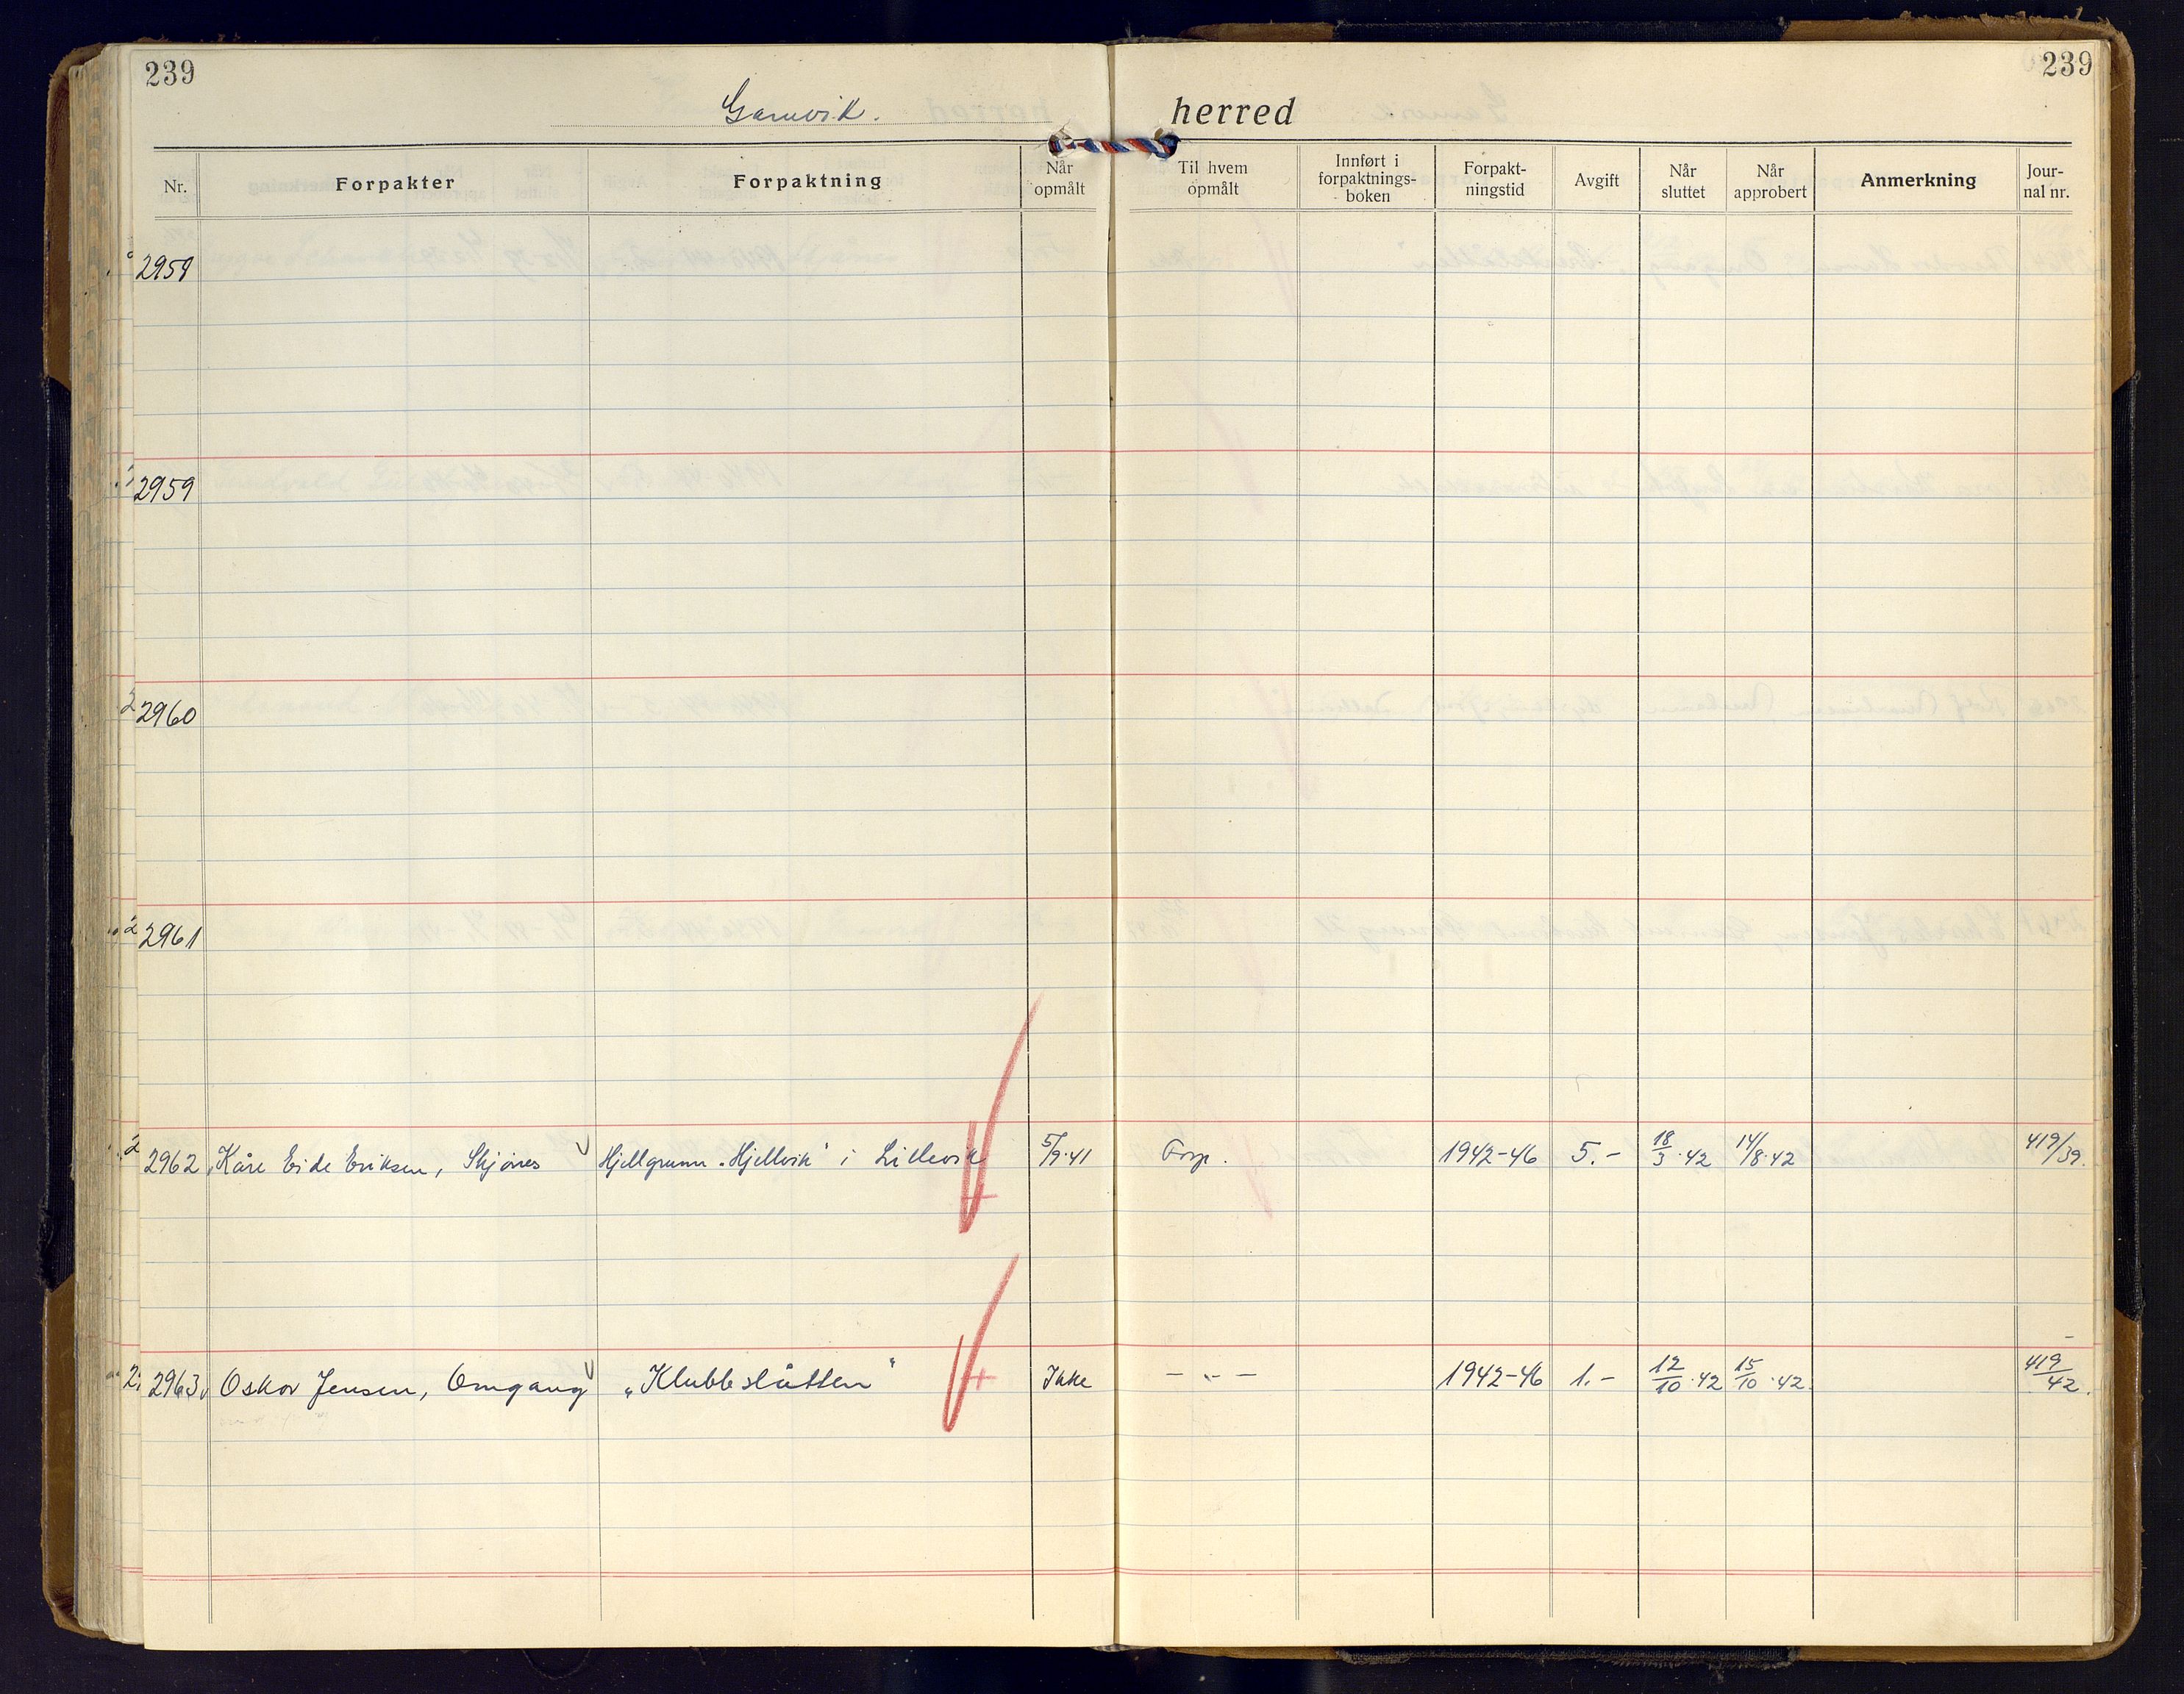 239
239
Gamvik. herred
Nr. Forpakter Forpaktning Når opmålt Til hvem opmålt Innført i forpaktnings- boken Forpakt- ningstid Avgift Når sluttet Når approbert Anmerkning Jour- nal nr.
2959
2959
2960
2961
2962 Kåre Eide Eriksen, Skjånes Hjellgrunn „Hjellvik" i Lillevik 5/9.41 Forp. 1942-46 5.- 18/3.42 14/8.42 419/39.
2963 Oskar Jensen, Omgang „Klubbeslåtten" Ikke - „ - 1942-46 1.- 12/10.42 15/10.42. 419/42.